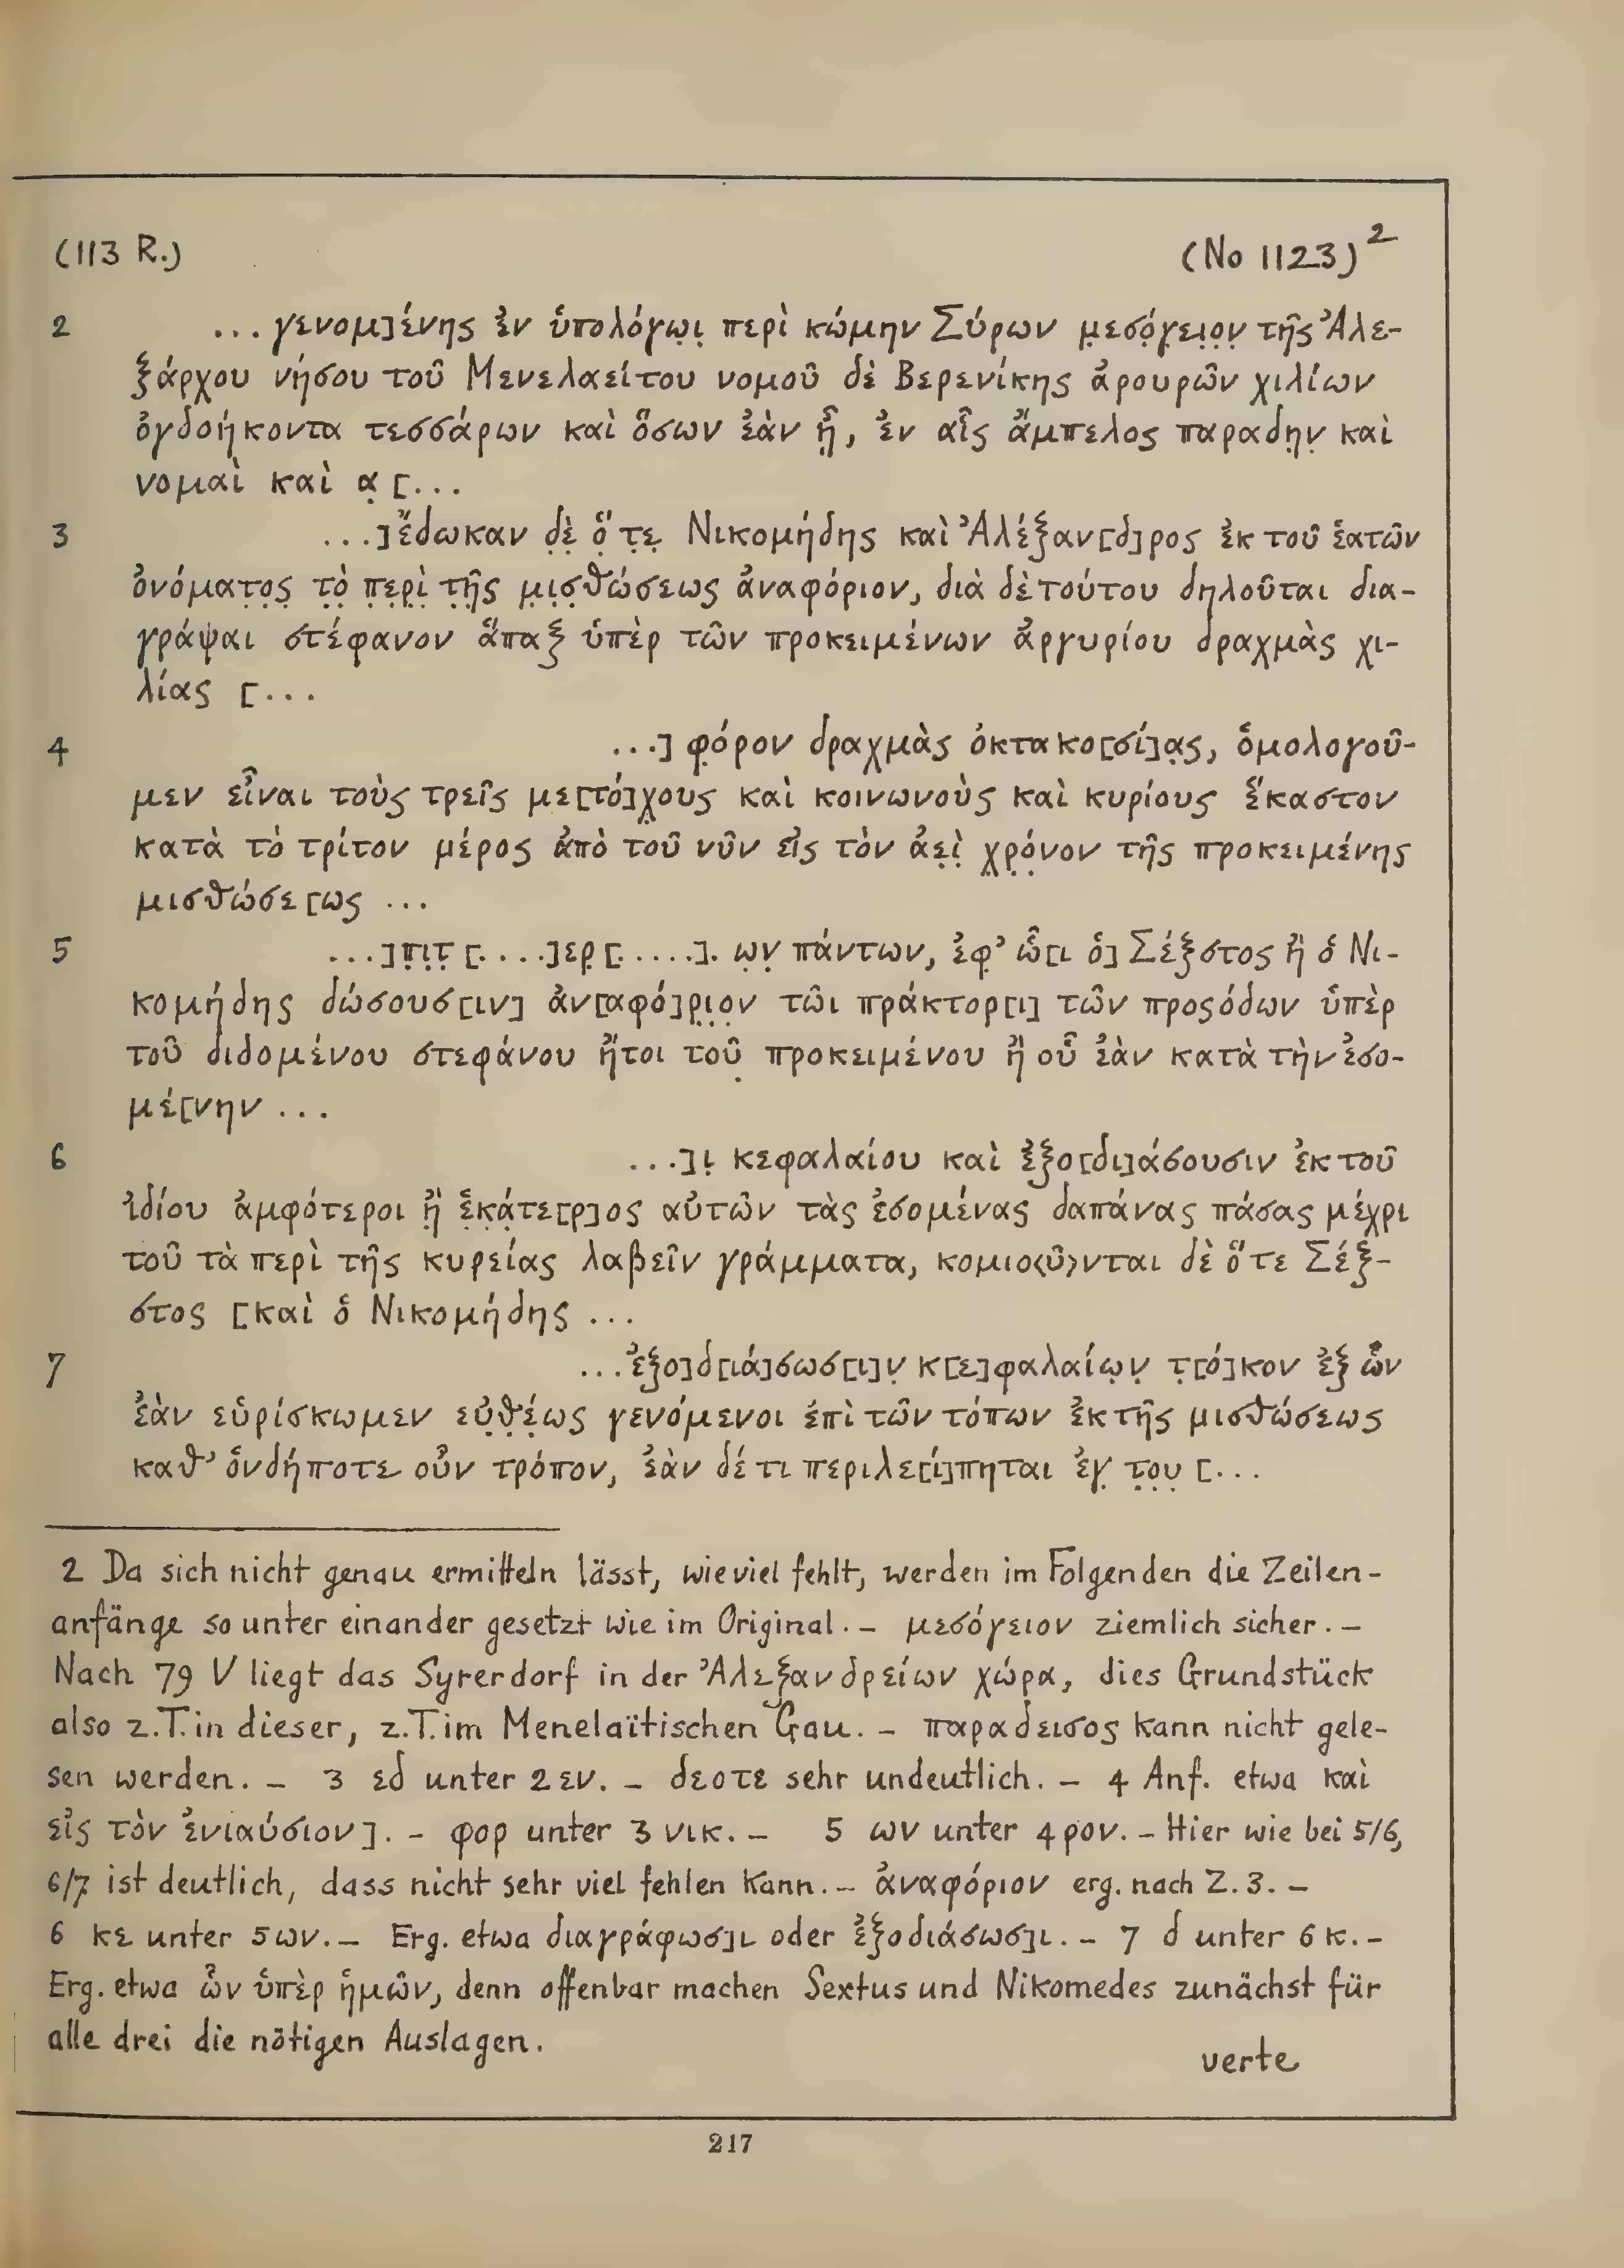 (113 R.) (No 1123) 2
2 ... γενομ]ένης ἐν ὑπολόγω̣ι̣ περὶ κώμην Σύρων μ̣εσό̣γ̣ει̣ο̣ν̣ τῆς Ἀλε-
ξάρχου νήσου τοῦ Μενελαείτου νομοῦ δὲ Βερενίκης ἀρουρῶν χιλίων
ὀγδοήκοντα τεσσάρων καὶ ὅσων ἐὰν ᾖ, ἐν αἷς ἄμπελος παραδη̣ν̣ καὶ
νομαὶ καὶ α̣ [...
3 ...]ἔδωκαν δ̣ὲ̣ ὅ̣ τ̣ε̣ Νικομήδης καὶ Ἀλέξαν[δ]ρος ἐκ τοῦ ἑατῶν
ὀνόματ̣ο̣ς̣ τ̣ὸ̣ π̣ε̣ρ̣ὶ̣ τ̣ῆ̣ς μ̣ι̣σ̣θώσεως ἀναφόριον, διὰ δὲ τούτου δηλοῦται δια-
γράψαι στέφανον ἅπαξ ὑπὲρ τῶν προκειμένων ἀργυρίου δραχμὰς χι-
λίας [...
4 ...] φ̣όρον δραχμὰς ὀκτακο[σί]α̣ς, ὁμολογοῦ-
μεν εἶναι τοὺς τρεῖς με[τό]χ̣ους καὶ κοινωνοὺς καὶ κυρίους ἕκαστον
κατὰ τὸ τρίτον μέρος ἀπὸ τοῦ νῦν εἰς τὸν ἀε̣ὶ̣ χ̣ρ̣ό̣νον τῆς προκειμένης
μισθώσε[ως ...
5 ...]π̣ι̣τ̣ [....]ερ̣ [.....]. ω̣ν̣ πάντων, ἐφ̣’ ὧ[ι ὁ] Σέξστος ἢ ὁ Νι-
κομήδης δώσουσ[ιν] ἀν[αφό]ρ̣ι̣ο̣ν τῶι πράκτορ[ι] τῶν προςόδων ὑπὲρ
τοῦ διδομένου στεφάνου ἤτοι τοῦ̣ προκειμένου ἢ οὗ ἐὰν κατὰ τὴν ἐσο-
μέ[νην ...
6 ...]ι̣ κεφαλαίου καὶ ἐξο[δι]άσουσιν ἐκ τοῦ
ἰδίου ἀμφότεροι ἢ̣ ἑ̣κ̣ά̣τε[ρ]ος αὐτῶν τὰς ἐσομένας δαπάνας πάσας μέχρι
τοῦ τὰ περὶ τῆς κυρείας λαβεῖν γράμματα, κομιο<ῦ>νται δὲ ὅ τε Σέξ-
στος [καὶ ὁ Νικομήδης ...
7 ...ἐξο]δ[ιά]σωσ[ι]ν̣ κ[ε]φαλαίω̣ν̣ τ̣[ό]κον ἐξ ὧν
ἐὰν εὑρίσκωμεν εὐ̣θ̣έ̣ως γενόμενοι ἐπὶ τῶν τόπων ἐκ τῆς μισθώσεως
καθ’ ὁνδήποτε οὖν τρόπον, ἐὰν δέ τι περιλε[ί]πηται ἐγ̣ τ̣ο̣υ̣ [...
2 Da sich nicht genau ermitteln lässt, wieviel fehlt, werden im Folgenden die Zeilen-
anfänge so unter einander gesetzt wie im Original. – μεσόγειον ziemlich sicher. –
Nach 79 V liegt das Syrerdorf in der Ἀλεξανδρείων χώρα, dies Grundstück
also z.T. in dieser, z.T. im Menelaïtischen Gau. – παραδεισος kann nicht gele-
sen werden. – 3 εδ unter 2 εν. – δεοτε sehr undeutlich. – 4 Anf. etwa καὶ
εἰς τὸν ἐνιαύσιον]. – φορ unter 3 νικ. – 5 ων unter 4 ρον. – Hier wie bei 5/6,
6/7 ist deutlich, dass nicht sehr viel fehlen kann. – ἀναφόριον erg. nach Z. 3. –
6 κε unter 5 ων. – Erg. etwa διαγράφωσ]ι oder ἐξοδιάσωσ]ι. – 7 δ unter 6 κ. –
Erg. etwa ὧν ὑπὲρ ἡμῶν, denn offenbar machen Sextus und Nikomedes zunächst für
alle drei die nötigen Auslagen.
verte
217